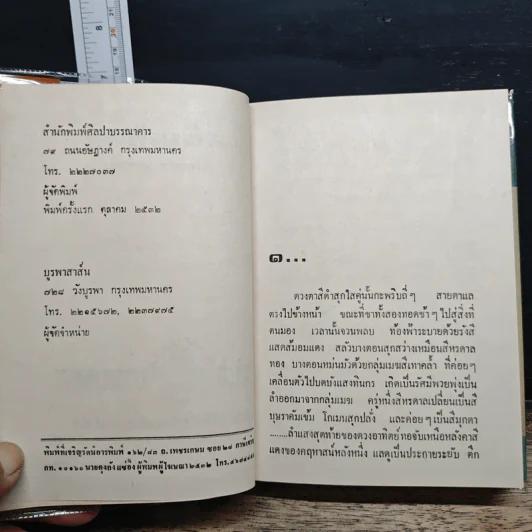 สำนักพิมพ์ศิลปาบรรณาคาร
๗๙ ถนนอัษฎางค์ กรุงเทพมหานคร
โทร. ๒๒๒๗๐๓๗
ผู้จัดพิมพ์
พิมพ์ครั้งแรก ตุลาคม ๒๕๓๒
บูรพาสาส์น
๗๒๘ วังบูรพา กรุงเทพมหานคร
โทร. ๒๒๑๕๖๗๒, ๒๒๓๗๙๗๕
ผู้จัดจำหน่าย
พิมพ์ที่เจริญรัตน์การพิมพ์ ๑๖๒/๘๓ ถ. เพชรเกษม ซอย ๒๘
กท. ๑๐๑๖๐ ผู้พิมพ์ผู้โฆษณา ๒๕๓๒ โทร.
๑...
ดวงตาสีดำสุกใสคู่นั้นกะพริบถี่ๆ สายตาแล
ตรงไปข้างหน้า ขณะที่ขาทั้งสองทอดช้าๆ ไปสู่สิ่งที่
ตนมอง เวลานั้นจวนพลบ ท้องฟ้าระบายด้วยรังสี
แสดล้อมแดง สลัวบางตอนสุกสว่างเหมือนสีหรดาล
ทอง บางตอนหม่นมัวด้วยกลุ่มเมฆสีเทาคล้ำ ที่ค่อยๆ
เคลื่อนตัวไปบดบังแสงทินกร เกิดเป็นรัศมีพวยพุ่งเป็น
ลำออกมาจากกลุ่มเมฆ ครู่หนึ่งสีหรดาลเปลี่ยนเป็นสี
บุษราคัมเข้ม โกเมนสุกปลั่ง และค่อยๆ เป็นสีมุกดา
........ลำแสงสุดท้ายของดวงอาทิตย์ทอจับเหนือหลังคาสี
แดงของคฤหาสน์หลังหนึ่ง แลดูเป็นประกายระยับ ตึก
8
7